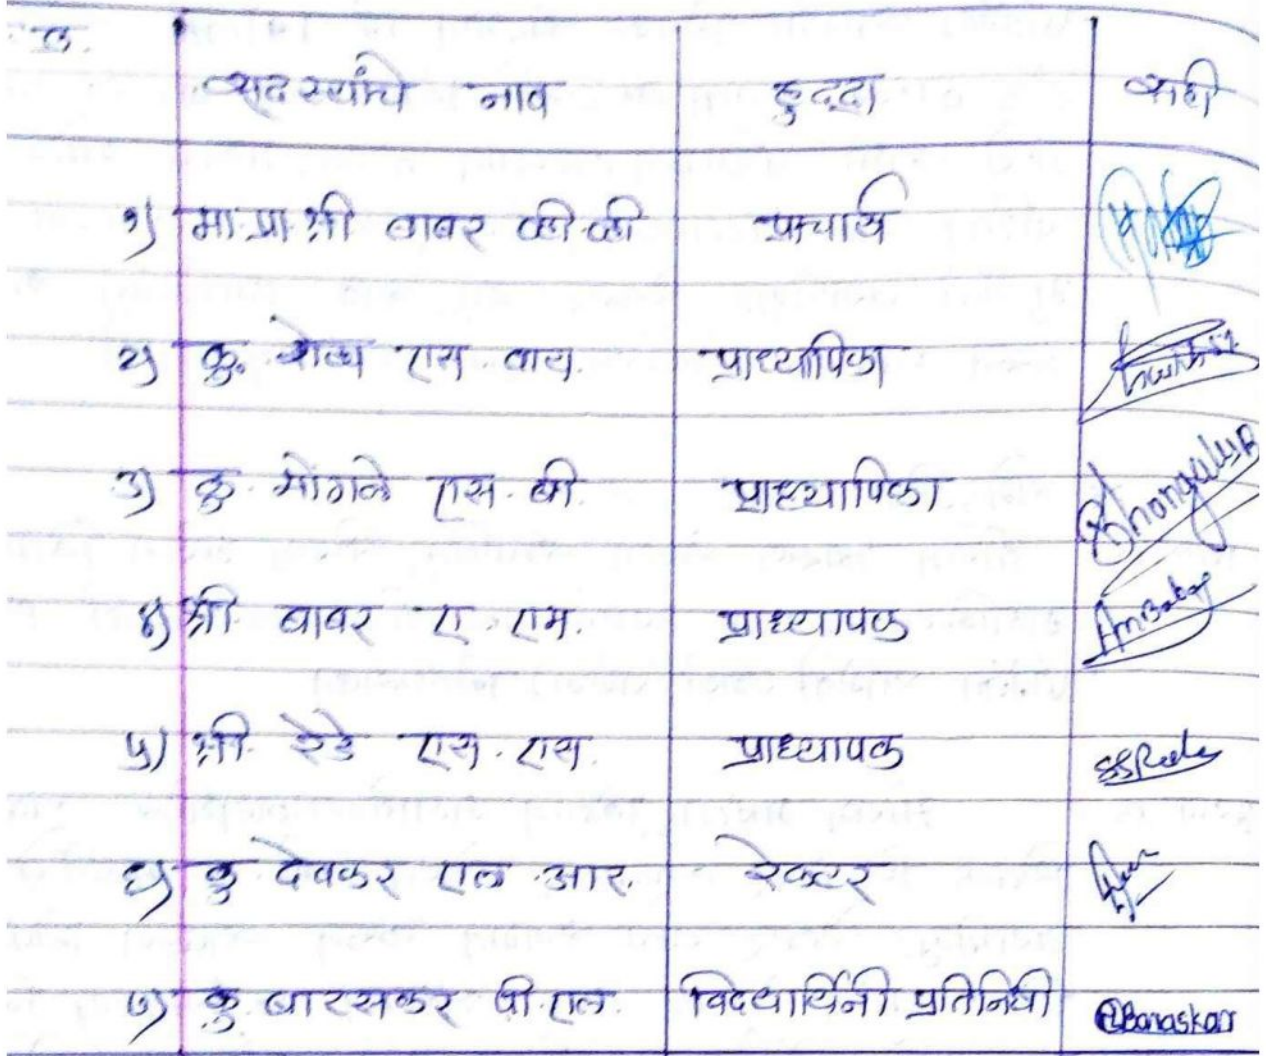 सदस्यांचे नाव हुद्दा सही
१) मा.प्रा.श्री बाबर व्ही.व्ही प्राचार्य
२) कु. एस वाय. प्राध्यापिका
३) कु. भोंगळे एस. बी प्राध्यापिका Bhongale SB
४) श्री बाबर ए. एम. प्राध्यापक AmBabar
५) श्री. रेडे एस. एस. प्राध्यापक SSRede
६) कु देवकर एल .आर. रेक्टर
७) कु बारसकर पी.एल. विद्यार्थिनी प्रतिनिधी PLBaraskar